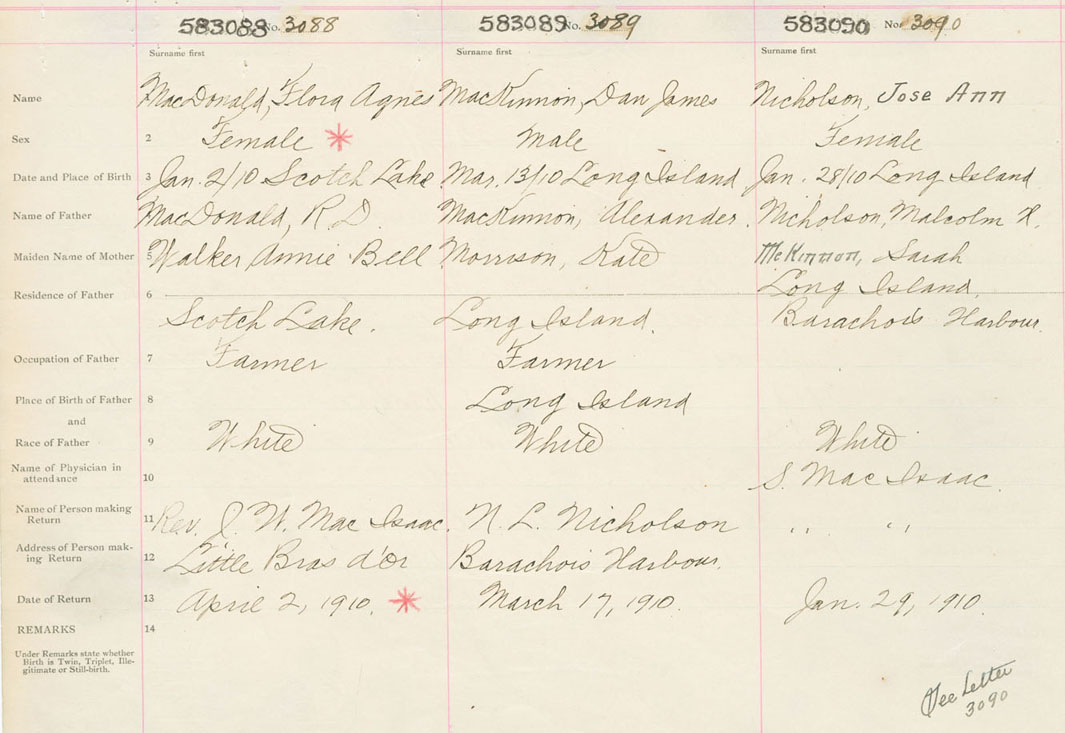 583088 No. 3088 583089 No. 3089 583090 No. 3090
Surname first Surname first Surname first
Name MacDonald, Flora Agnes MacKinnon, Dan James Nicholson, Jose Ann
Sex 2 Female * Male Female
Date and Place of Birth 3 Jan. 2/10 Scotch Lake Mar. 13/10 Long Island Jan. 28/10 Long Island
Name of Father MacDonald, R. D. MacKinnon, Alexander. Nicholson, Malcolm H.
Maiden Name of Mother 5 Walker, Annie Bell Morrison, Kate McKinnon, Sarah
Residence of Father 6 Long Island,
Scotch Lake. Long Island. Barachois Harbour.
Occupation of Father 7 Farmer Farmer
Place of Birth of Father 8 Long Island
and
Race of Father 9 White White White
Name of Physician in
attendance 10 S. MacIsaac.
Name of Person making
Return 11 Rev. J. W. MacIsaac. N. L. Nicholson " "
Address of Person mak-
ing Return 12 Little Bras d'Or Barachois Harbour.
Date of Return 13 April 2, 1910. * March 17, 1910. Jan. 29, 1910.
REMARKS 14
Under Remarks state whether
Birth is Twin, Triplet, Ille-
gitimate or Still-birth.
See Letter
3090